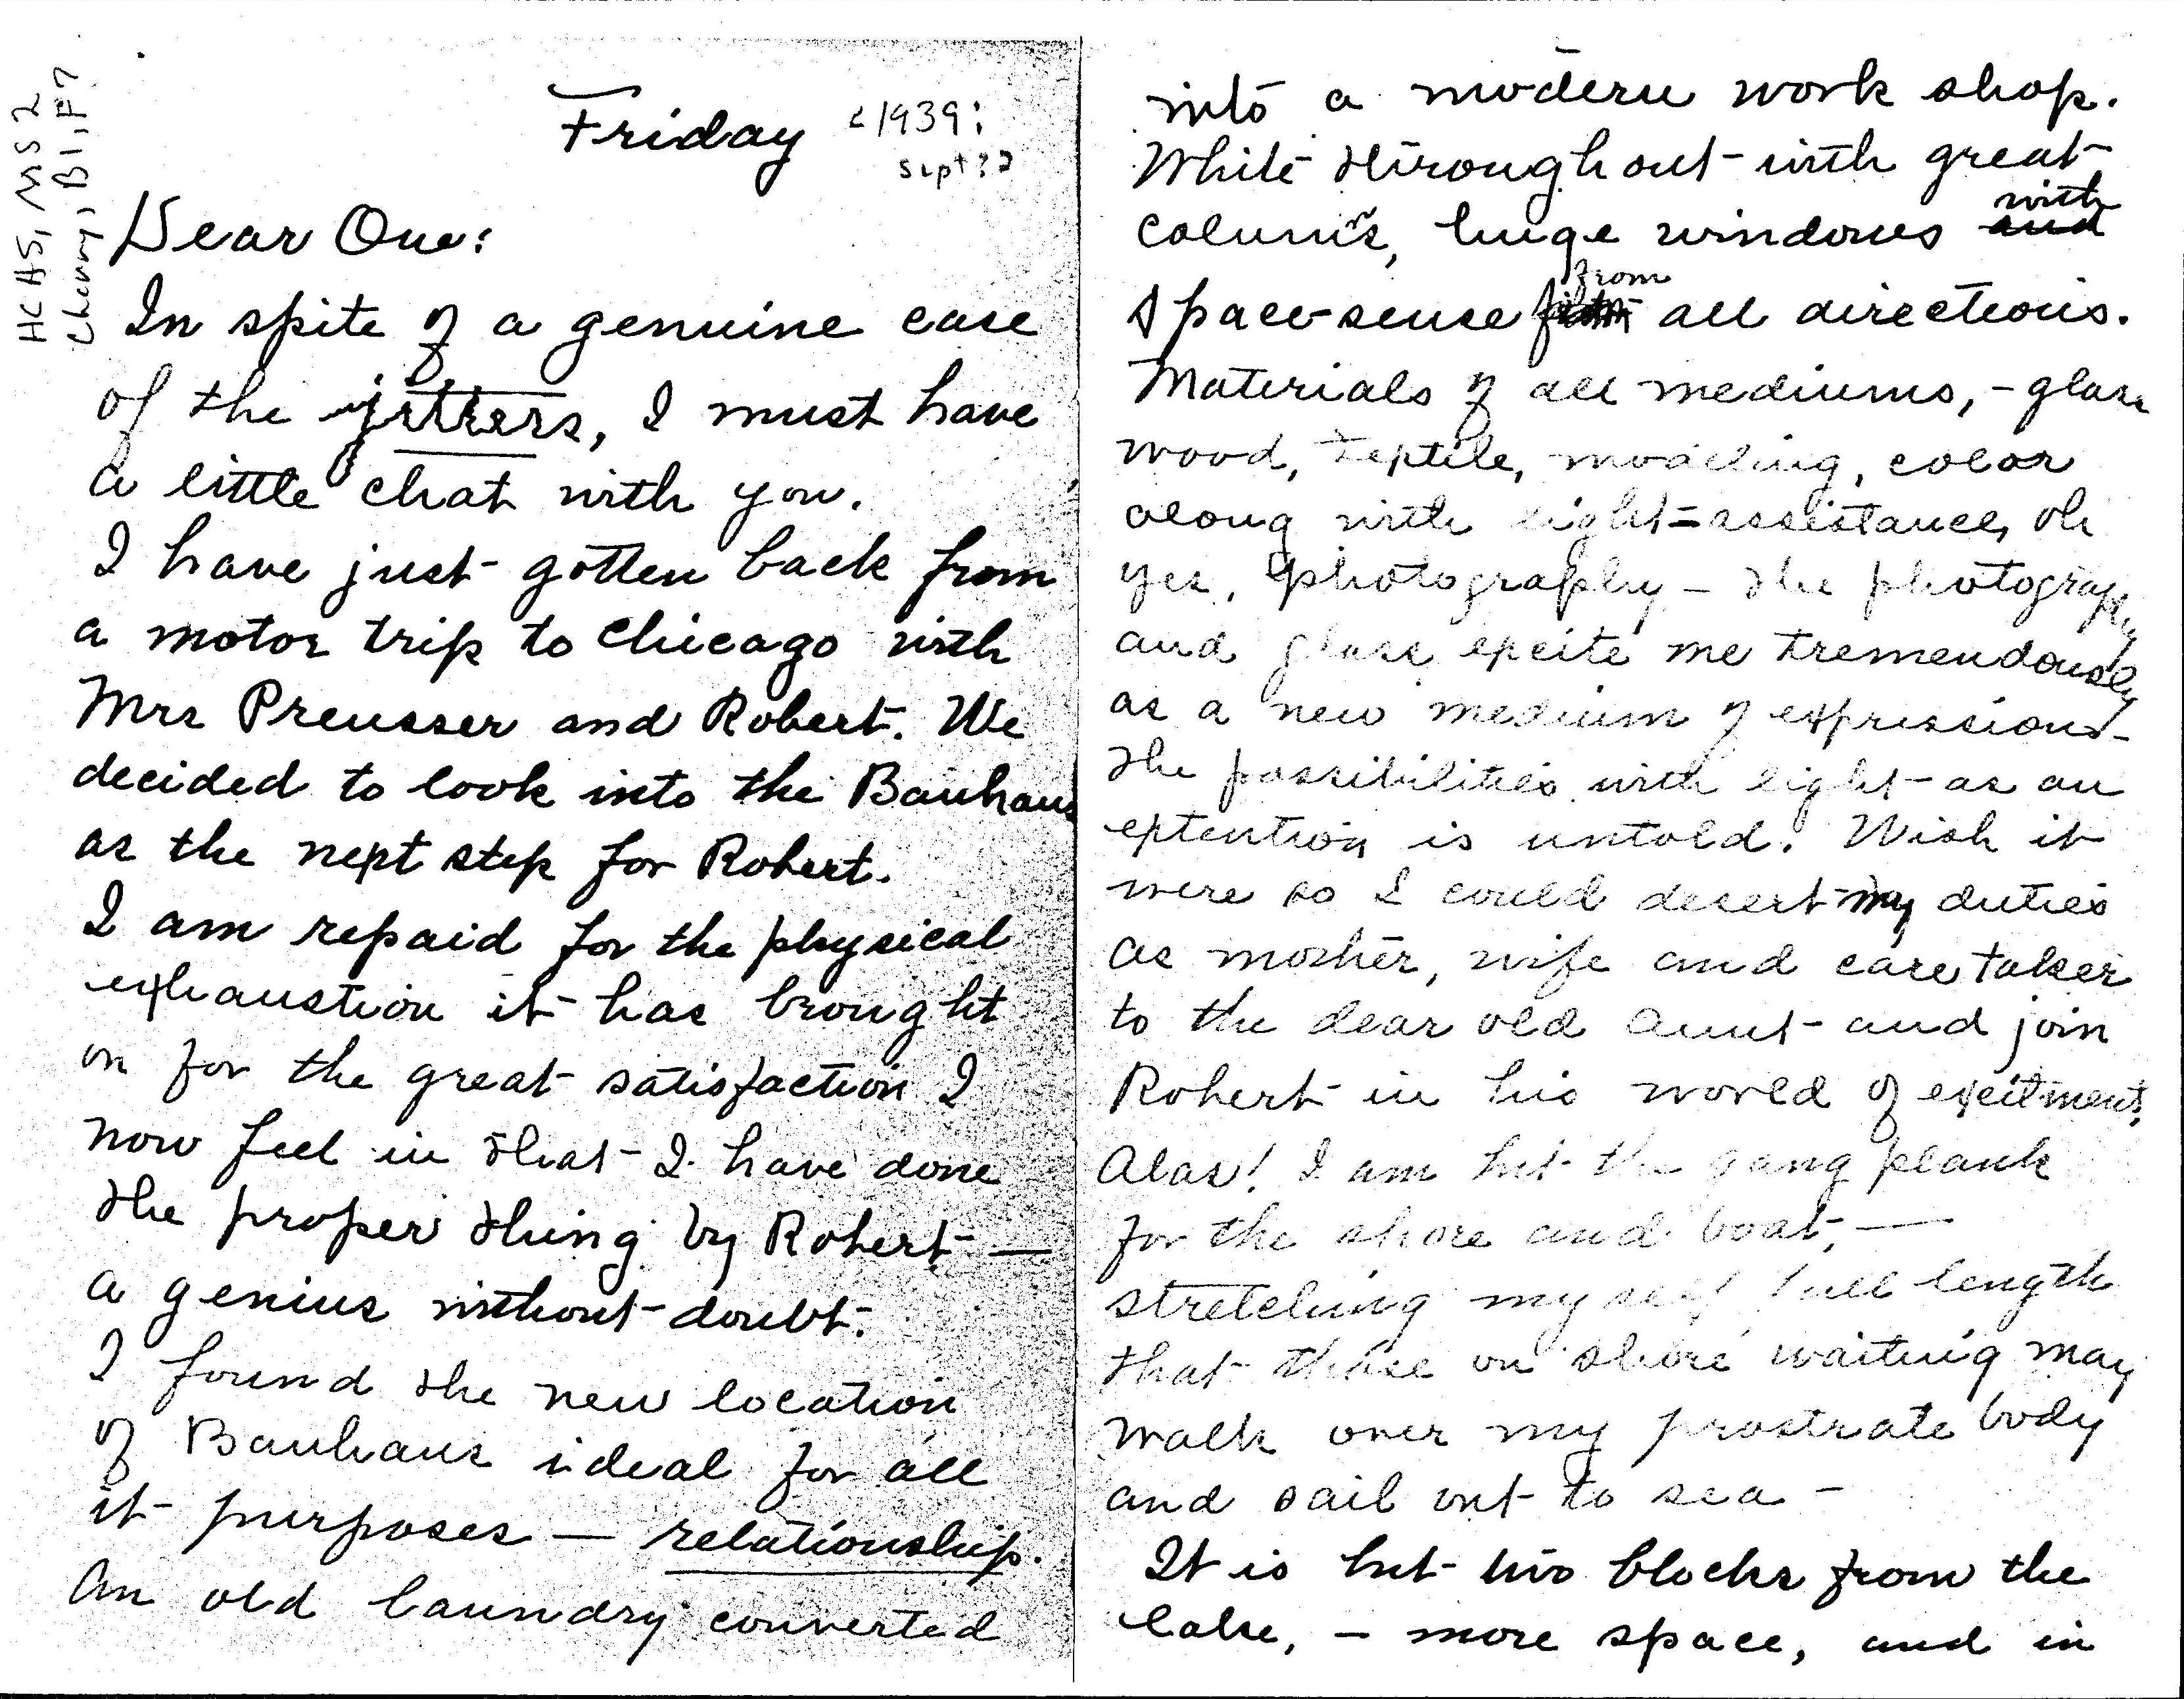 HCHS, MS 2
Cherry, B1, F7
Friday
<1939:
Sept??
Dear One:
In spite of a genuine case
of the jitters, I must have
a little chat with you.
I have just gotten back from
a motor trip to Chicago with
Mrs Preusser and Robert. We
decided to look into the Bauhaus
as the next step for Robert.
I am repaid for the physical
exhaustion it has brought
on for the great satisfaction I
now feel in that I have done
the proper thing by Robert —
a genius without doubt.
I found the new location
of Bauhaus ideal for all
it purposes — relationship.
An old laundry converted
into a modern work shop.
White throughout with great
columns, huge windows and with
space-sense from all directions.
Materials of all mediums, - glass
wood, textile, modeling, color
along with light=assistance, oh
yes, photography - The photography
and glass excite me tremendously
as a new medium of expression -
The possibilities with light as an
extention is untold. Wish it
were so I could desert my duties
as mother, wife and care taker
to the dear old aunt and join
Robert in his world of excitment.
Alas! I am but the gang plank
for the shore and boat, —
stretching my self full length
that those on shore waiting may
walk over my prostrate body
and sail out to sea -
It is but two blocks from the
lake, - more space, and in